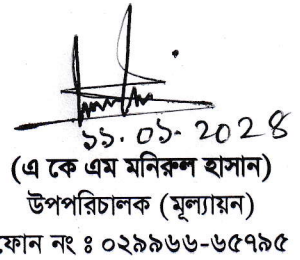 ১১.০১.২০২৪
(এ কে এম মনিরুল হাসান)
উপপরিচালক (মূল্যায়ন)
ফোন নং ঃ ০২৯৯৬৬-৬৫৭৯৫